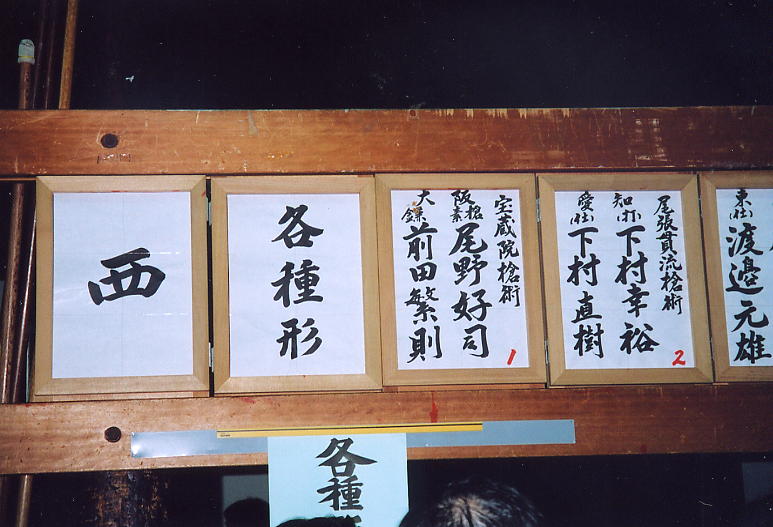 西
各種形
宝蔵院槍術
大阪
素槍 尾野好司
鎌 前田繁則
1
尾張貫流槍術
愛知
(打) 下村幸裕
(仕) 下村直樹
2
東
(仕) 渡邊元雄
各種